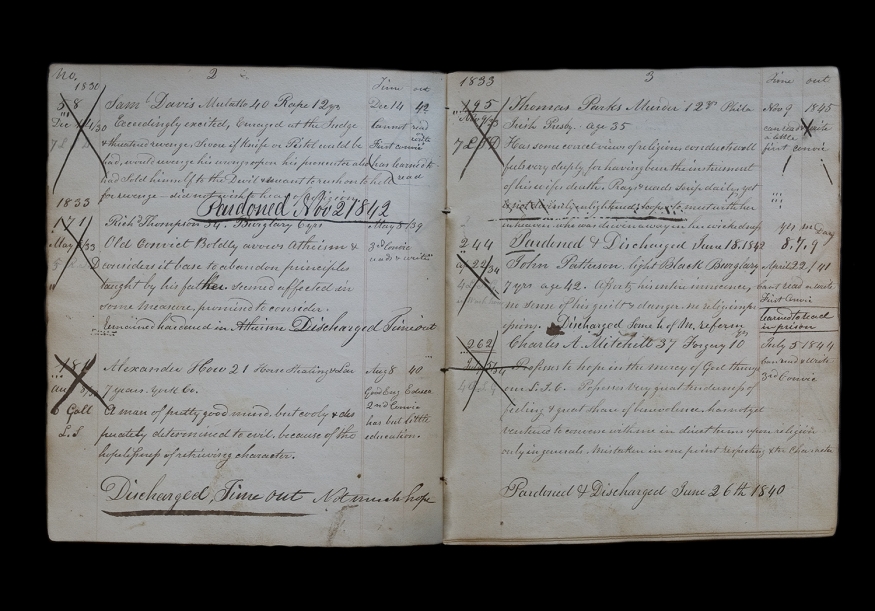 No. 2
1830 Time out
58 Sam.l Davis Mulatto 40 Rape 12 yrs Dec 14 42
Dec 14/30 Exceedingly excited, Enraged at the Judge Cannot read
& threatened revenge. Sd once if Knife or Pistol could be write
had, would revenge his wrongs upon his prosecutor also First convic
had sold himself to the Devil & meant to rush on to hell has learned to
for revenge - did not wish to hear of religion read
Pardoned Nov 2/1842
1833
171 Rich.d Thompson 34. Burglary 6 yrs May 8/39
May 8/33 Old Convict Boldly avows Atheism & 3rd Convic
considers it base to abandon principles reads & writes
taught by his father. Seemed affected in
some measure, promised to consider.
Remained hardened in Atheism Discharged Time out
Alexander How 21 Horse Stealing & Lar Aug 8 40
Aug 7 years. York Co. Good Eng. Educa
6 Gall A man of pretty good mind. but cooly & des 2nd Convic
L.S perately determined to evil, because of the has but little
hopelessness of retrieving character. education.
Discharged, Time out Not much hope
1833 3 Time out
195 Thomas Parks Murder 12 yrs Phila Nov 9 1845
Nov 9/33 Irish Presby - age 35 can read & write
a little
7 Has some correct views of religion, conduct well first convic
feels very deeply for having been the instrument
of his wifes death. Prays & reads Scrip daily, yet
is not savingly enlightened, hopes to meet with her
in heaven, who was driven away in her wickedness yrs. m Day
244 Pardoned & Discharged June 18. 1842 8. 7. 9
22/34 John Patterson. light Black Burglary April 22/41
7 yrs age 42. Asserts his entire innocence, cant read or write
no sense of his guilt & danger. no religious First Convi
learned to read
Discharged Some h of In. reform in prison
262 Charles A. Mitchell 37 Forgery 10 yrs July 5 1844
Professes to hope in the mercy of God through can read & write
our L. J. C. Possesses very great tenderness of 3rd Convic
feeling & great share of benevolence, has not yd
ventured to converse with me in direct terms upon religion
only in generals. Mistaken in one point respecting & the Character
Pardoned & Discharged June 26th 1840